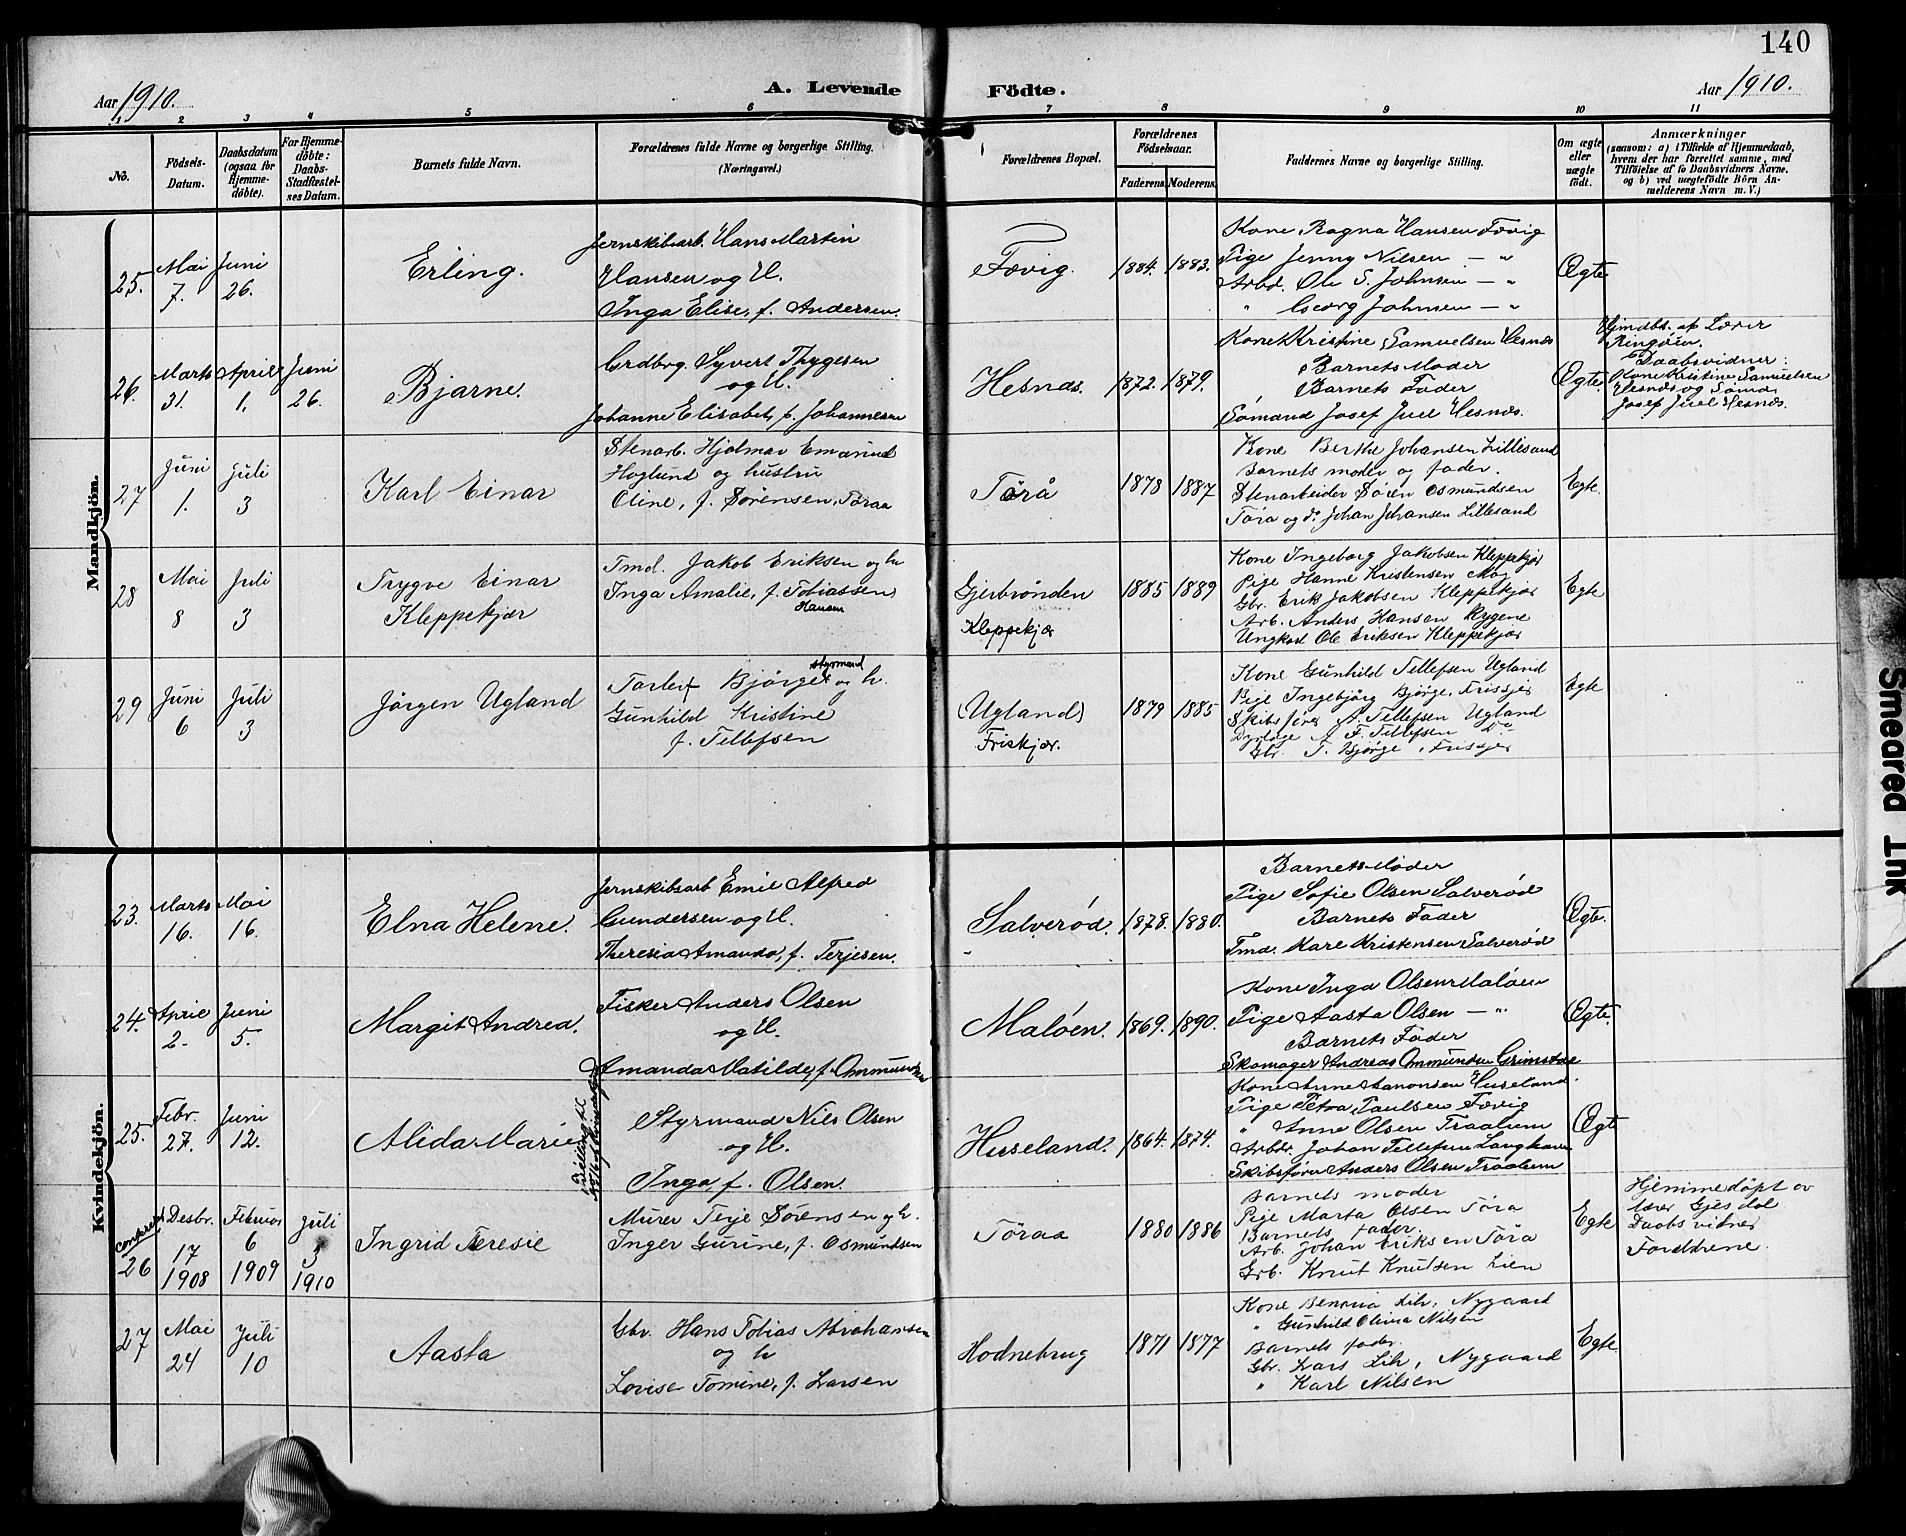 140
Aar 1910.
A. Levende
Födte.
Aar 1910.
1 2 3 4 5 6 7 8 9 10 11
No.
Födsels-
Datum.
Daabsdatum
(ogsaa for
Hjemme-
döbte).
For Hjemme-
döbte:
Daabs-
Stadfæstel-
ses Datum.
Barnets fulde Navn.
Forældrenes fulde Navne og borgerlige Stilling.
(Næringsvei.)
Forældrenes Bopæl.
Forældrenes
Födselsaar.
Faderens.
Moderens.
Faddernes Navne og borgerlige Stilling.
Om ægte
eller
uægte
födt.
Anmærkninger
(saasom: a) i Tilfælde af Hjemmedaab,
hvem der har forrettet samme, med
Tilföielse af to Daabsvidners Navne.
og b) ved uægtefödte Börn An-
melderens Navn m. V.)
Mandkjön.
25.
Mai
7.
Juni
26.
Erling.
Jernskibsarb. Hans Martin
Hansen og H.
Inga Elise, f. Andersen.
Fævig.
1884.
1883.
Kone Ragna Hansen Fævig
Pige Jenny Nilsen — "
Arbd. Ole S. Johnsen — "
" Georg Johnsen — "
Ægte
26.
Marts
31.
April
1.
Juni
26.
Bjarne.
Syvert Thygesen
og H.
Johanne Elisabet, f. Johannesen
Hesnæs.
1872.
1879.
Kone Kristine Samuelsen Hesnæs
Barnets Moder
Barnets Fader
Sömand Josef Juel Hesnæs.
Ægte.
Hjmdbt. af Lærer
Ringöen.
Daabsvidner:
Kone Kristine Samuelsen
Hesnæs og Sömd.
Josef Juel Hesnæs.
27
Juni
1.
Juli
3
Karl Einar
Stenarb. Hjalmar Emanuel
Hoglund og hustru
Oline, f. Sørensen, Töraa
Törå
1878
1887
Kone Berthe Johansen Lillesand
Barnets moder og fader.
Stenarbeider Sören Osmundsen
Töra og do. Johan Johansen Lillesand
Egte.
28
Mai
8
Juli
3
Trygve Einar
Kleppekjær
Tmd. Jakob Eriksen og h
Inga Amalie, f. Tobiassen
Hansen
Gjerbrönden
Kleppekjær
1885
1889
Kone Ingeborg Jakobsen Kleppekjær
Pige Hanne Kristensen
Gbr. Erik Jakobsen Kleppekjær
Arb. Anders Hansen Rygene
Ungkarl Ole Eriksen Kleppekjær
Egte
29
Juni
6
Juli
3
Jörgen Ugland
styrmand
Tarlef Bjørge og h.
Gunhild Kristine
f. Tellefsen
(Ugland)
Friskjær.
1879
1885
Kone Gunhild Tellefsen Ugland
Pige Ingebjörg Bjørge, Friskjær
Skibsförer A. Tellefsen Ugland
Dyrlæge A. F. Tellefsen Do
Gbr. T. Bjørge, Friskjær
Egte
Kvindekjön.
23.
Marts
16.
Mai
16.
Elna Helene.
Jernskibsarb Emil Alfred
Gundersen og H.
Theresia Amanda, f. Terjesen.
Salveröd.
1878.
1880.
Barnets Moder
Pige Sofie Olsen Salveröd
Barnets Fader
Tmd. Karl Kristensen Salveröd
Ægte.
24.
April
2.
Juni
5.
Margit Andrea.
Fisker Anders Olsen
og H.
Amanda Matilde, f. Ommundsen
Malöen.
1869.
1890.
Kone Inga Olsen Malöen
Pige Aasta Olsen — "
Barnets Fader
Skomager Andreas Ommundsen Grimstad
Ægte.
25.
Febr.
27.
Juni
12.
Alida Marie
Tvilling til
Styrmand Nils Olsen
og H.
Inga, f. Olsen.
Huseland.
1864.
1874.
Kone Anne Aanonsen Huseland.
Pige Petra Paulsen Fævig
" Anne Olsen Traalum
Arbdr. Johan Tellefsen Langhave
Skibsförer Anders Olsen Traalum
Ægte
26
Desbr.
17
1908
Februar
6
1909
Juli
3
1910
Ingrid Teresie
Murer Terje Sörensen og h.
Inger Gurine, f. Osmundsen
Töraa
1880
1886
Barnets moder
Pige Marta Olsen Töra
Barnets fader.
Arb. Johan Eriksen Töra
Grb. Knut Knutsen Lien
Egte
Hjemmedöpt av
lærer Gjesdal
Daabsvidner
Foreldrene.
27
Mai
24
Juli
10
Aasta
Gbr. Hans Tobias Abrahamsen
og h
Lovise Tomine, f. Larsen
Hodnebrug
1871
1877
Kone Lih, Nygaard
" Gunhild Olivia Nilsen
Barnets fader.
Gbr. Lars Lih, Nygaard
" Karl Nilsen
Egte.
Smeared Ink